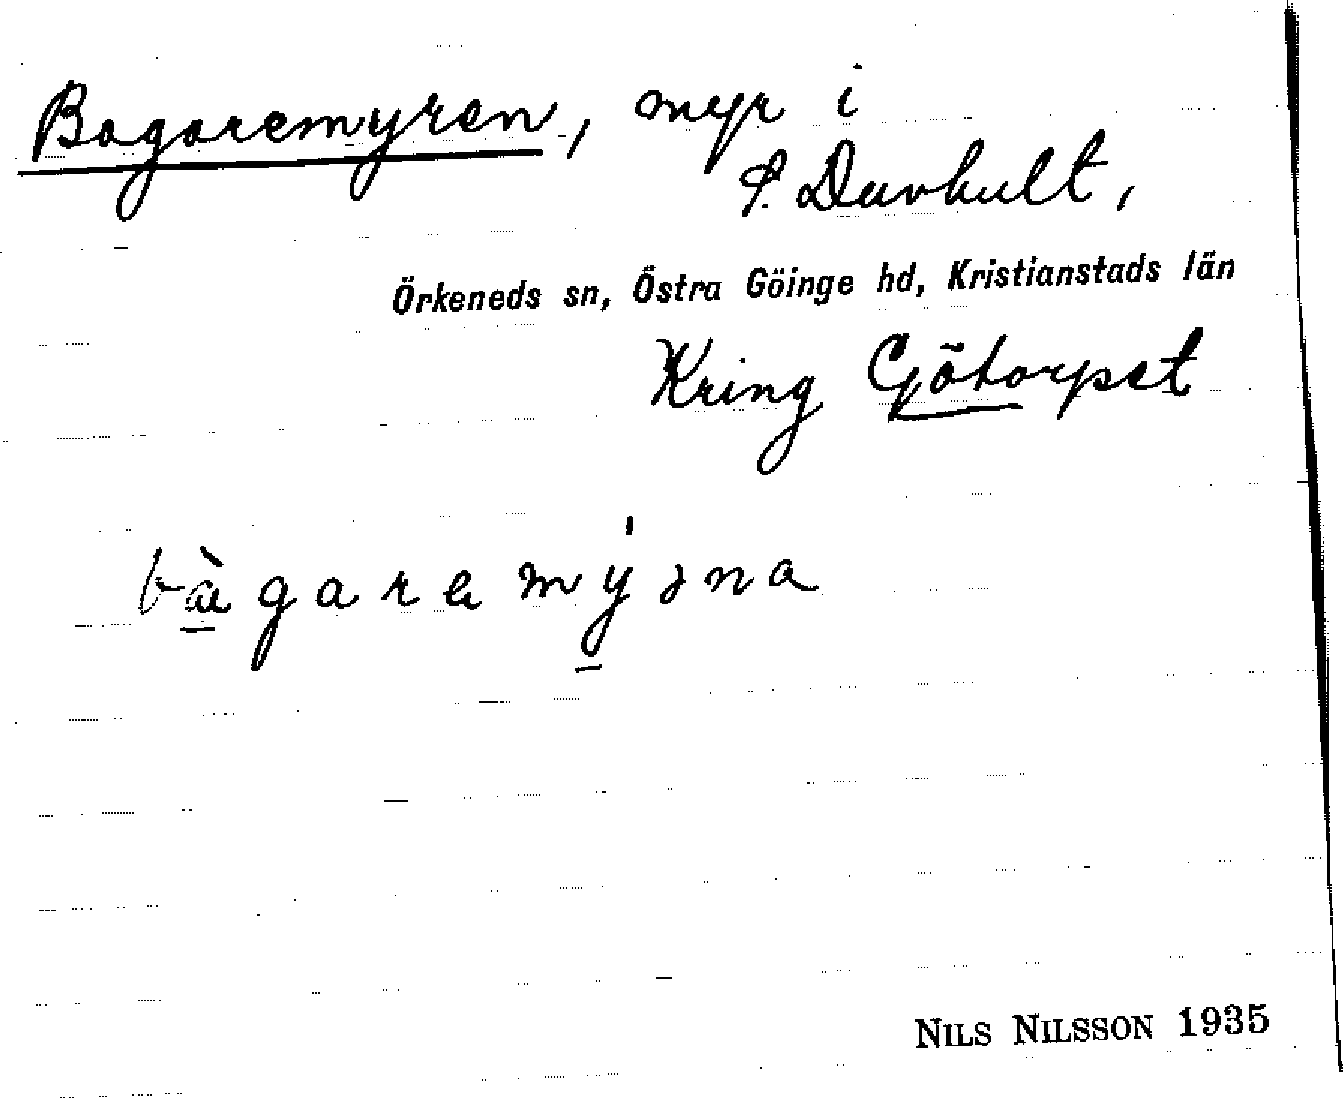 Bagaremyren, myr i
S. Duvhult,
Örkeneds sn, Östra Göinge hd, Kristianstads län
Kring Götorpet
bàgaramýrna
NILS NILSSON 1935